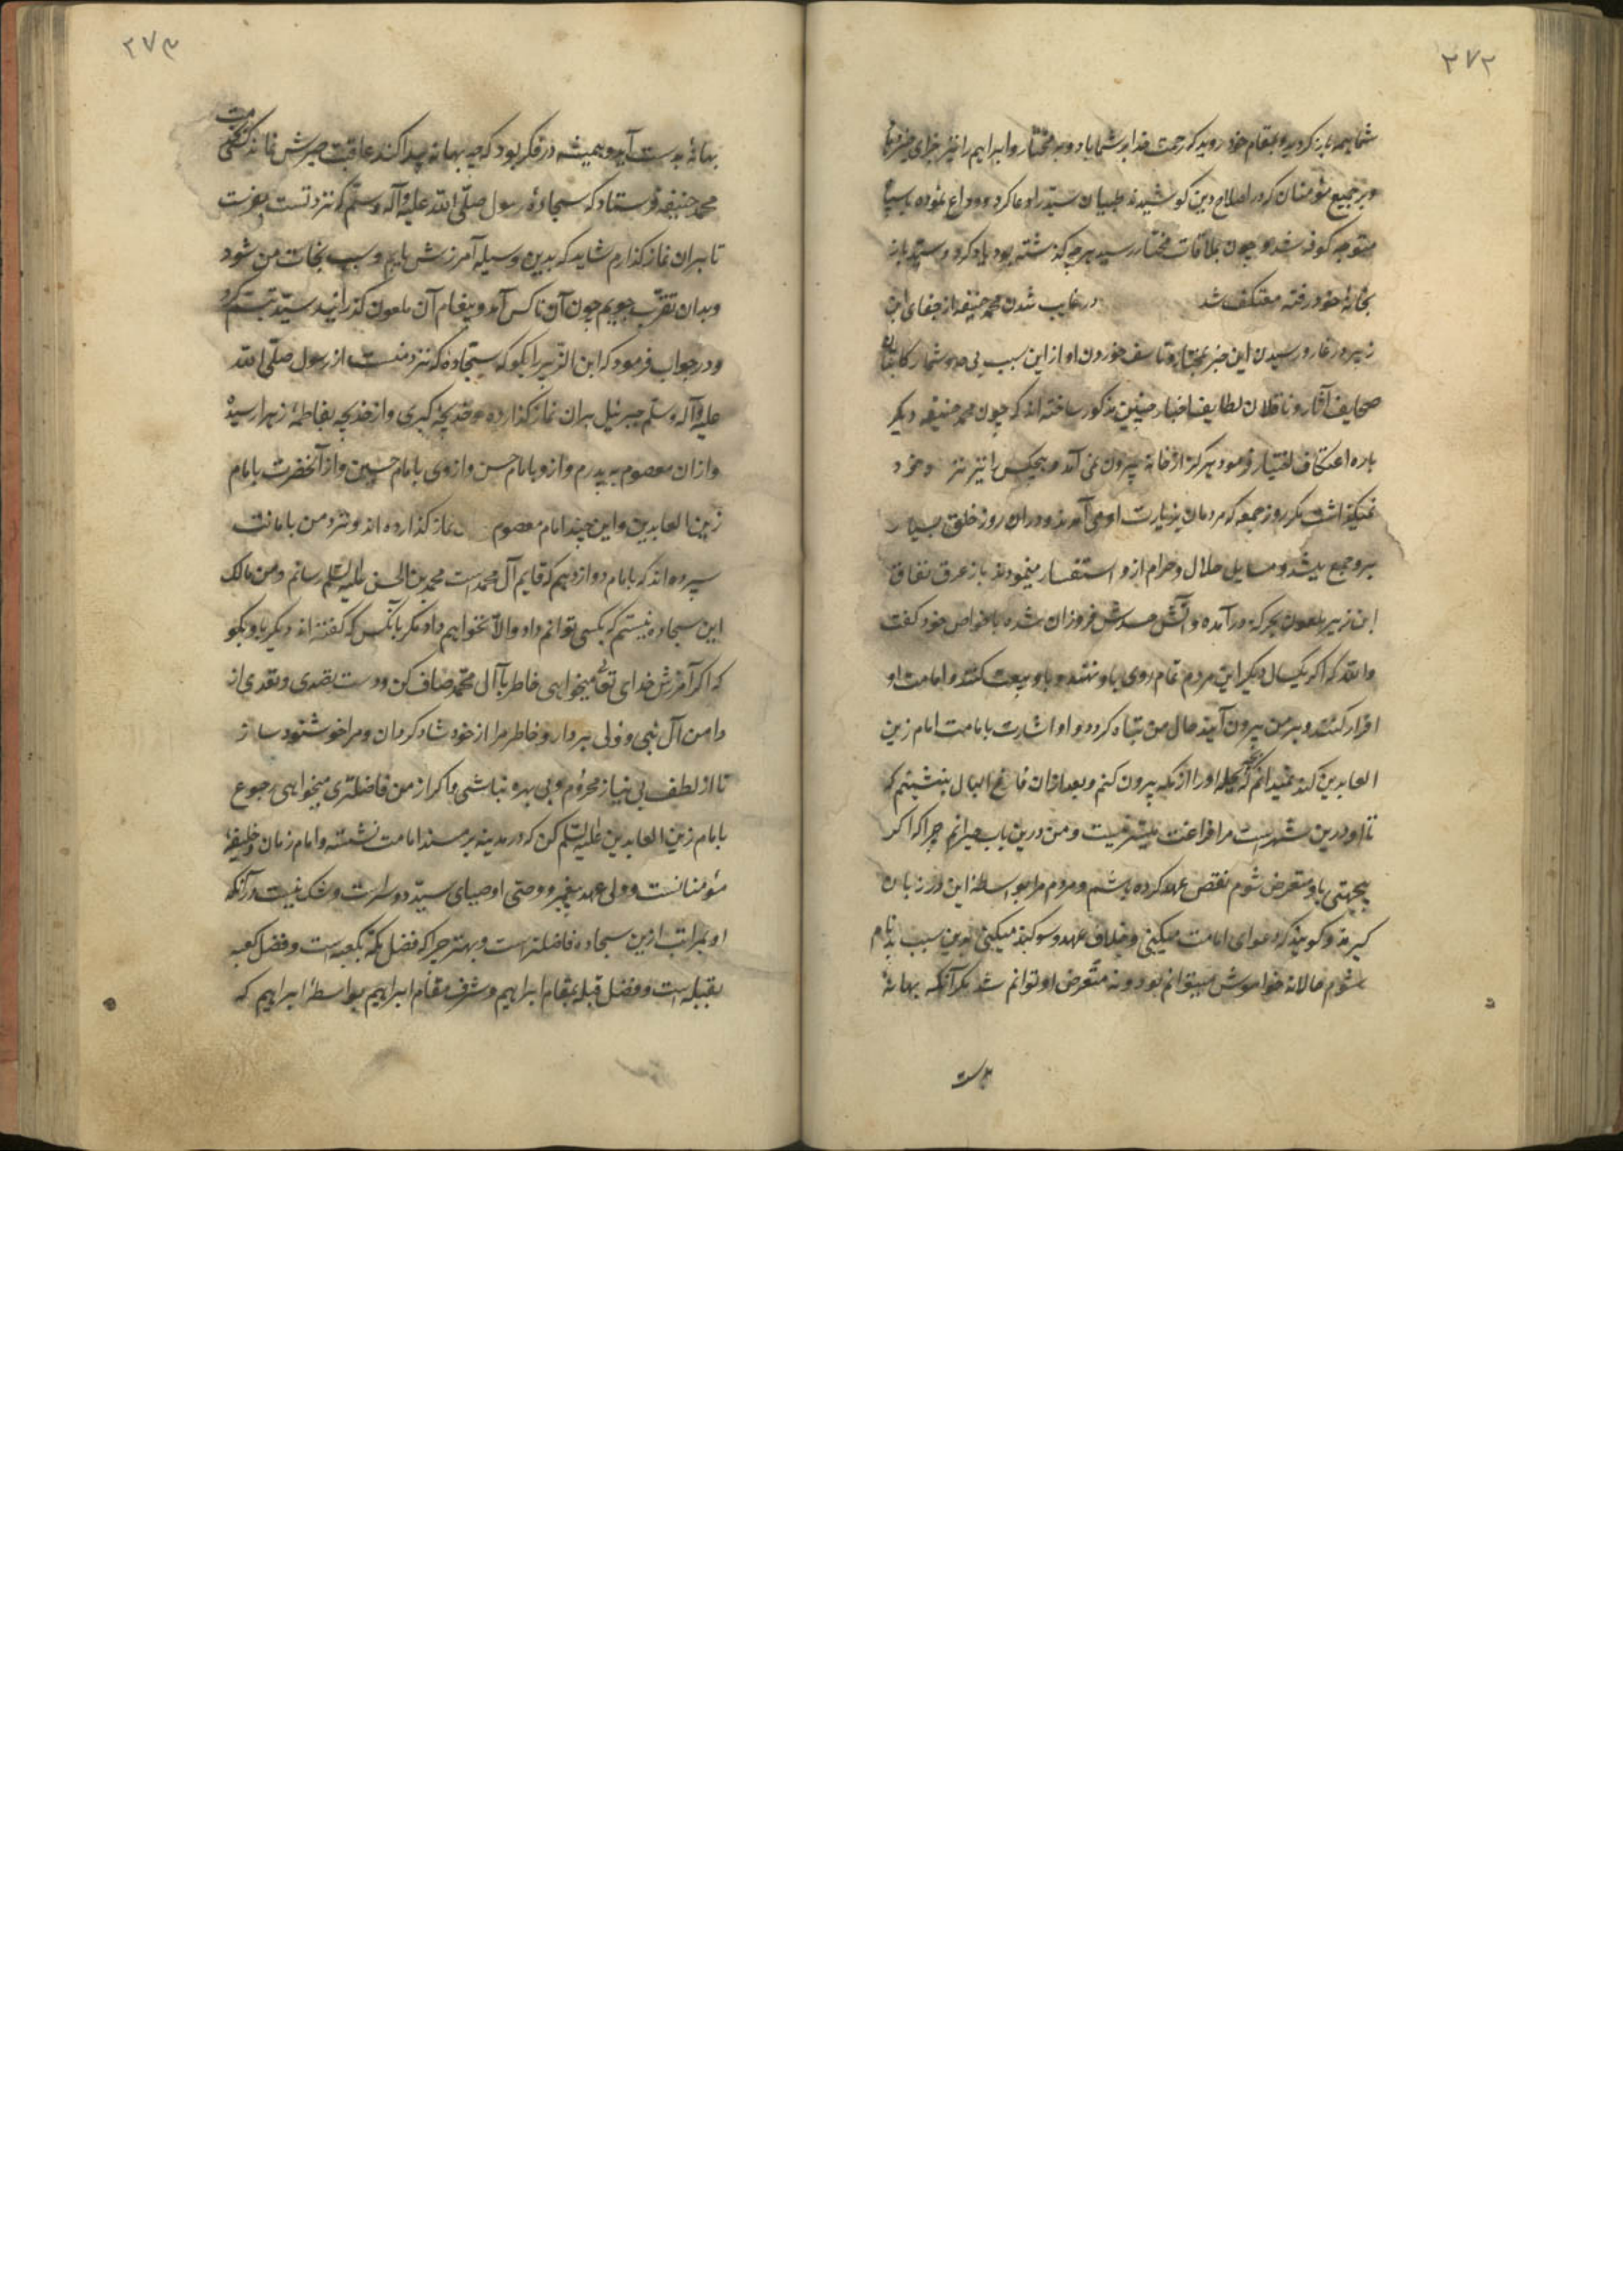 ۲۷۲
شما همه باز کردید و بمقام خود روید که رحمت خدا بر شما باد و بر مختار و ابراهیم را نیز جزای خیر
و بر جمیع مؤمنان که در اصلاح دین کوشیدند سید را دعا کرد و وداع نموده با سپاه
متوجه کوفه شد و چون بملاقات مختار رسید هر چه کذشته بود یاد کرد و سید باز
بخانهٔ خود رفته معتکف شد در غایب شدن محمد حنیفه از جفای ابن
زبیر در غار و رسیدن این خبر بمختار و تاسف خوردن او از این سبب بی حد و شمار کاتبان
صحایف آثار و ناقلان لطایف اخبار چنین مذکور ساخته اند که چون محمد حنیفه دیکر
باره اعتکاف اختیار فرمود هرکز از خانه بیرون نمی آمد و هیچکس را نیز نزد خود
نمیکذاشت مکر روز جمعه که مردمان بزیارت او می آمدند و دران روز خلق بسیار
برو جمع میشد و مسایل حلال و حرام ازو استفسار مینمودند باز عرق نفاق
ابن زبیر ملعون بحرکة درآمده و آتش حسدش فروزان شده با خواص خود کفت
والله که اکر یکسال دیکر این مردم تمام روی باو نهند و باو بیعت کنند و امامت او
اقرار کنند و بر من بیرون آیند حال من تباه کردد و او اشارت بامامت امام زین
العابدین کند نمیدانم که بچه حیله او را از مکه بیرون کنم و بعد ازان فارغ البال بنشینم که
تا او درین شهر است مرا فراغت میسر نیست و من درین باب حیرانم چرا که اکر
بیجهتی باو متعرض شوم نقص عهد کرده باشم و مردم مرا بواسطهٔ این در زبان
کیرند و کویند که دعوای امامت میکنی و خلاف عهد و سوکند میکنی بدین سبب بدنام
شوم حالا نه خواموش میتوانم بود و نه متعرض او توانم شد مکر آنکه بهانهٔ
بدست
۲۷۳
بهانهٔ بدست آید و همیشه در فکر بود که چه بهانه پیدا کند عاقبت صبرش نماند کس بخدمت
محمد حنیفه فرستاد که سجادهٔ رسول صلّی الله علیه و آله و سلّم که نزد تست بفرست
تا بران نماز کذارم شاید که بدین وسیله آمرزش یابم و سبب نجات من شود
و بدان تقرّب جویم چون آن ناکس آمد و پیغام آن ملعون کذرانید سیّد تبسّم کرد
و در جواب فرمود که ابن الزّبیر را بکو که سجّادهٔ که نزد منست از رسول صلّی الله
علیه و آله و سلّم جبرئیل بران نماز کذارده و خدیجهٔ کبری و از خدیجه بفاطمهٔ زهرا رسیدهٔ
و از ان معصوم به پدرم و ازو بامام حسن و از وی بامام حسین و از آنحضرت بامام
زین العابدین و این چند امام معصوم نماز کذارده اند و نزد من بامانت
سپرده اند که بامام دوازدهم که قایم آل محمد است محمد بن الحسن علیه السّلم رسانم و من مالک
این سجاده نیستم که بکسی توانم داد و الّا نخواهم داد مکر بآنکس که کفته اند دیکر باو بکو
که اکر آمرزش خدای تعالی میخواهی خاطر با آل محمّد صاف کن و دست تصدی و تعدی از
دامن آل نبی و ولی بردار و خاطر مرا از خود شاد کردان و مرا خوشنود ساز
تا از لطف بی نیاز محروم و بی بهره نباشی و اکر از من فاضلتری میخواهی رجوع
بامام زین العابدین علیه السّلم کن که در مدینه بر مسند امامت نشسته و امام زمان و خلیفهٔ
مؤمنانست و ولی عهد پیغمبر و وصّی اوصیای سیّد دوسراست و شک نیست در آنکه
او بمراتب ازین سجاده فاضلتر است و بهتر چرا که فضل مکّه بکعبه است و فضل کعبه
بقبله است و فضل قبله بمقام ابراهیم و شرف مقام ابراهیم بواسطهٔ ابراهیم که